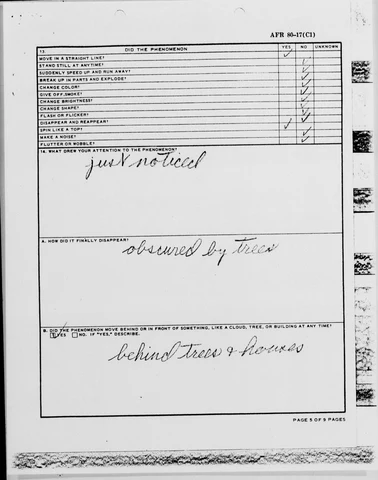 AFR 80-17(C1)
13. DID THE PHENOMENON YES NO UNKNOWN
MOVE IN A STRAIGHT LINE? ✓
STAND STILL AT ANYTIME? ✓
SUDDENLY SPEED UP AND RUN AWAY? ✓
BREAK UP IN PARTS AND EXPLODE? ✓
CHANGE COLOR? ✓
GIVE OFF SMOKE? ✓
CHANGE BRIGHTNESS? ✓
CHANGE SHAPE? ✓
FLASH OR FLICKER? ✓
DISAPPEAR AND REAPPEAR? ✓
SPIN LIKE A TOP? ✓
MAKE A NOISE? ✓
FLUTTER OR WOBBLE? ✓
14. WHAT DREW YOUR ATTENTION TO THE PHENOMENON?
just noticed
A. HOW DID IT FINALLY DISAPPEAR?
obscured by trees
B. DID THE PHENOMENON MOVE BEHIND OR IN FRONT OF SOMETHING, LIKE A CLOUD, TREE, OR BUILDING AT ANY TIME?
YES NO. IF "YES," DESCRIBE.
behind trees & houses
PAGE 5 OF 5 PAGES